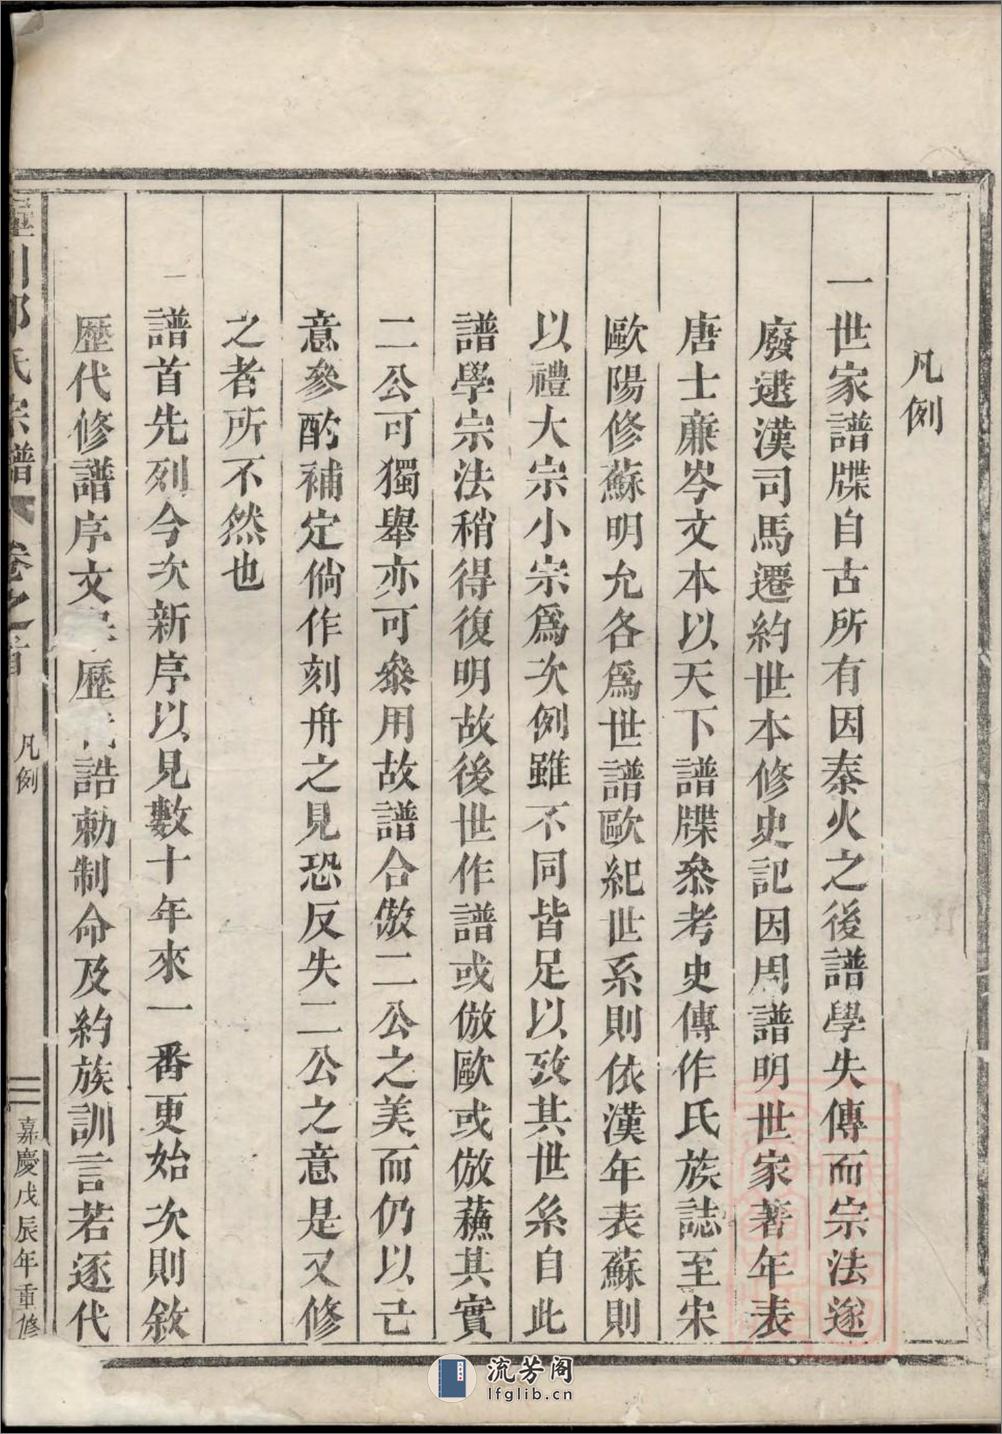 凡例
一世家譜牒自古所有因秦火之後譜學失傳而宗法遂
廢逮漢司馬遷約世本修史記因周譜明世家著年表
唐士廉岑文本以天下譜牒叅考史傳作氏族誌至宋
歐陽修蘇明允各爲世譜歐紀世系則依漢年表蘇則
以禮大宗小宗爲次例雖不同皆足以攷其世系自此
譜學宗法稍得復明故後世作譜或倣歐或倣蘓其實
二公可獨舉亦可叅用故譜合倣二公之美而仍以己
意參酌補定倘作刻舟之見恐反失二公之意是又修
之者所不然也
一譜首先列今次新序以見數十年來一番更始次則敘
歷代修譜序文 歷 誥勅制命及約族訓言若逐代
氏宗譜 卷之首 凡例 三 嘉慶戊辰年重修
流芳阁
lfglib.cn